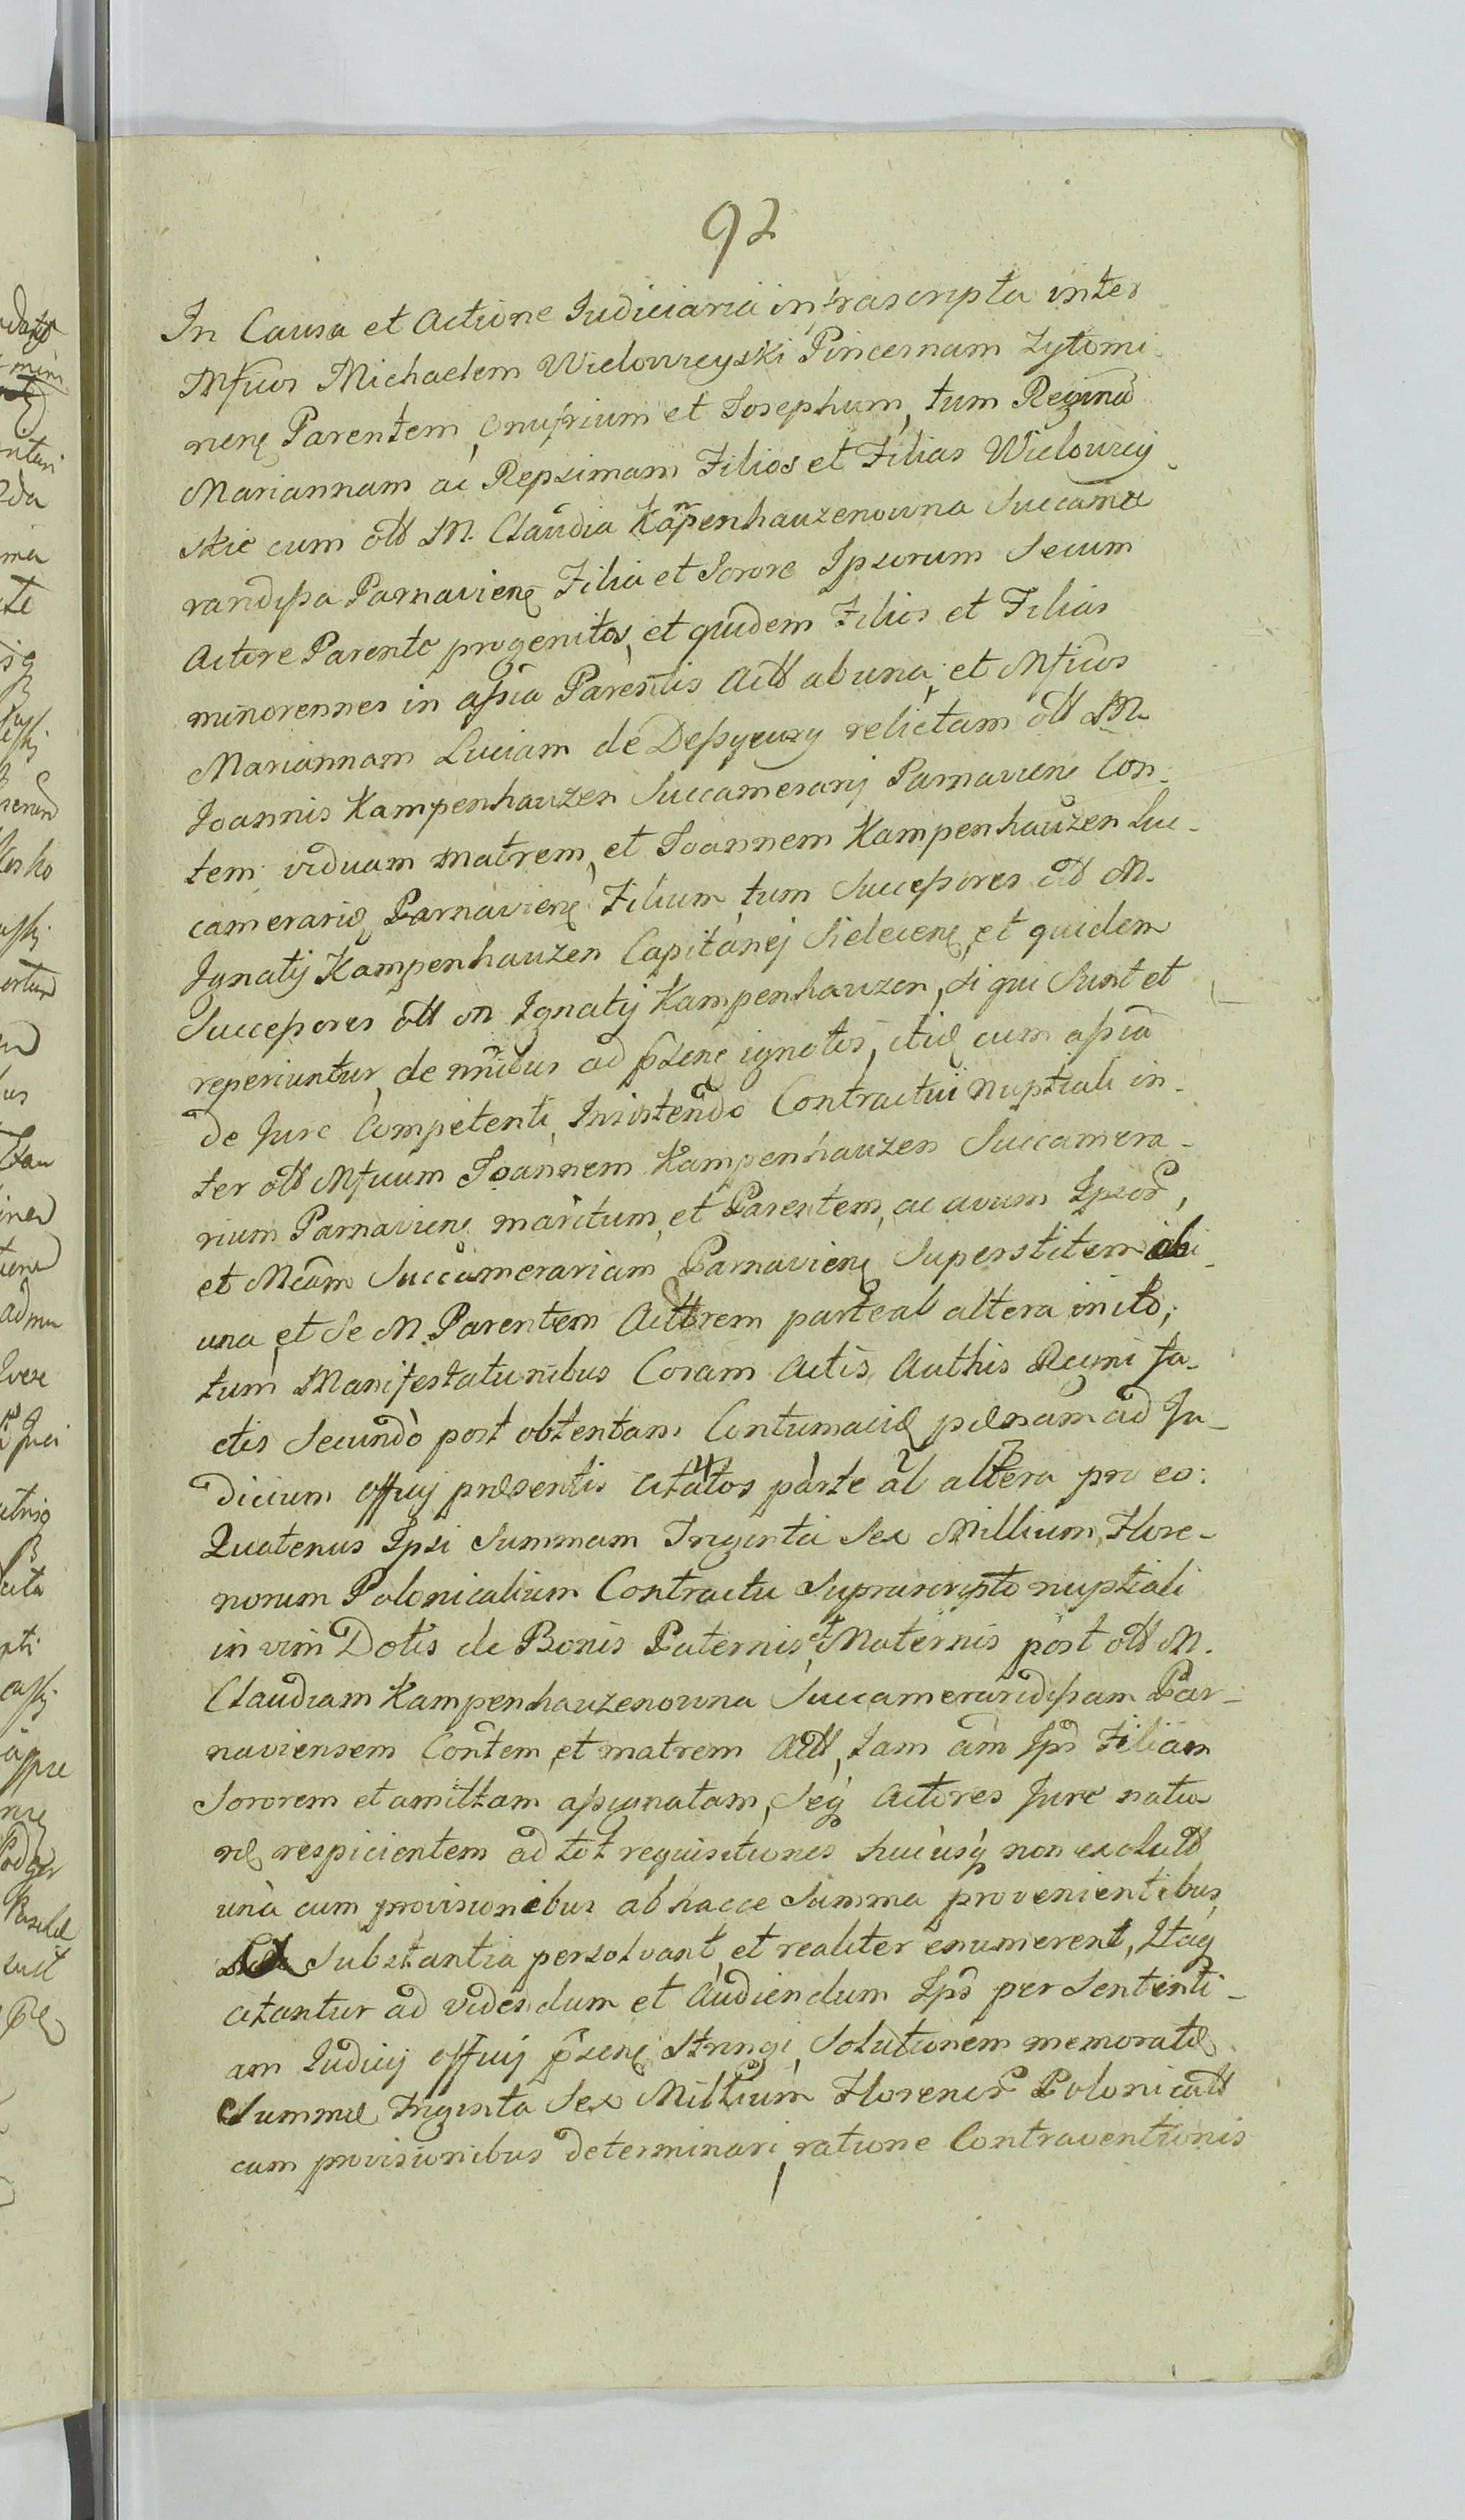 92
In Causa et Actione Iudiciaria infrascripta inter
Mficos Michaelem Wielowieyski Pincernam Zytomi
rienę Parentem, Onufrium et Josephum, tum Reginam
Mariannam ac Repsimam Filios et Filias Wielowiey
skie cum olt M. Claudia Kampenhauzenowna Succame
randissa Parnavienę Filia et Sorore Ipsorum Secum
Actore Parente progenitos, et quidem Filios et Filias
minorennes in assia Parentis Actt ab una; et Mficos
Mariannam Luciam de relictam olt M.
Joannis Kampenhauzen Succamerarij Parnaviene Con-
tem viduam matrem, et Joannem Kampenhauzen Suc-
camerarię Parnavienę Filium, tum Successores olt M.
Ignatij Kampenhauzen Capitanej et quidem
Successores olt M Ignatij Kampenhauzen, si qui Sunt et
reperiuntur, de nnibus ad pzenę ignotos, itiq cum assia
de Jure Competenti, Insistendo Contractui nuptiali in-
ter olt Mficum Joannem Kampenhauzen Succamera-
rium Parnavienę maritum, et Parentem, ac avum Ipsor,
et Mcam Succamerariam Parnavienę Superstitem ab
una, et Se M. Parentem Acttrem parte ab altera inito;
tum Manifestationibus Coram Actis Authis Regni fa-
ctis Secundo post obtentam Contumaciæ pænam ad Ju-
dicium officij præsentis Citatos parte ab altera pro eo:
Quatenus Ipsi Summam Triginta Sex Millium Flore-
norum Polonicalium Contractu Suprascripto nuptiali
in vim Dotis de Bonis Paternis et Maternis post olt M.
Claudiam Kampenhauzenowna Succamerandissam Par-
naviensem Contem, et matrem Actt, tam Filiam
Sororem et amittam assignatam, Seq Actores Jure natu
ræ respicientem ad tot requisitiones hucusq non exolutt
unà cum provisionibus ab hacce Summa provenientibus,
Substantia persolvant, et realiter enumerent, Itaq
citantur ad videndum et Audiendum Ips per Sententi-
am Iudicij officij pzenę Stringi, Solutionem memoratæ
Summæ Triginta Sex Millium Florenor Polonicatt
cum provisionibus determinari, ratione Contraventionis